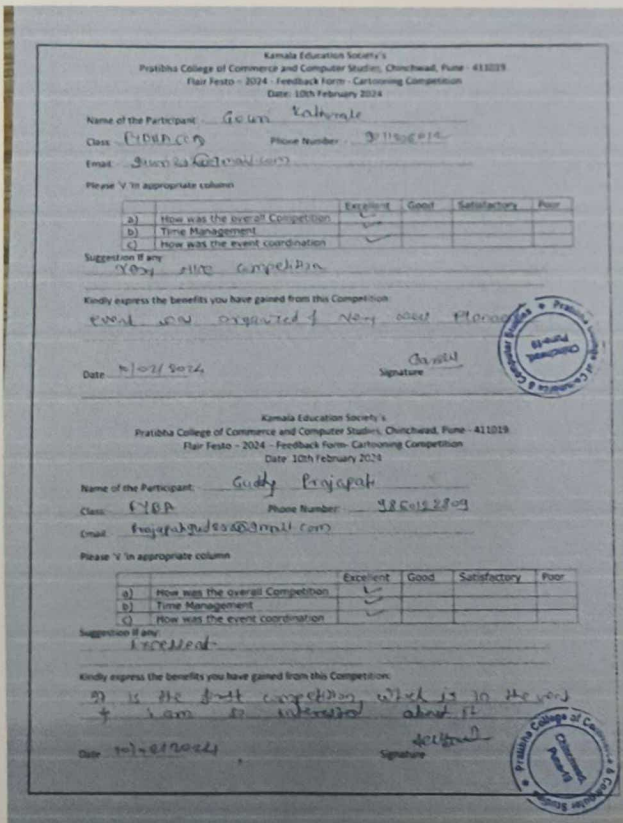 Kamala Education Society's
Pratibha College of Commerce and Computer Studies, Chinchwad, Pune - 411019
Flair Festo - 2024 - Feedback Form - Cartooning Competition
Date: 10th February 2024
Name of the Participant:
Class: Phone Number:
Email:
Please '√' in appropriate column
Excellent Good Satisfactory Poor
a) How was the overall Competition
b) Time Management
c) How was the event coordination
Suggestion if any:
Very nice competition
Kindly express the benefits you have gained from this Competition:
event was organized & very
Date Signature
Pratibha College of Commerce & Computer Studies
Chinchwad, Pune-19
Kamala Education Society's
Pratibha College of Commerce and Computer Studies, Chinchwad, Pune - 411019
Flair Festo - 2024 - Feedback Form- Cartooning Competition
Date 10th February 2024
Name of the Participant: Guddy Prajapati
Class: FYBA Phone Number:
Email:
Please '√' in appropriate column
Excellent Good Satisfactory Poor
a) How was the overall Competition
b) Time Management
c) How was the event coordination
Suggestion if any:
Excellent
Kindly express the benefits you have gained from this Competition:
It is the first competition which is in the
& i am so interested about it
Date Signature
Pratibha College of Commerce & Computer Studies
Chinchwad, Pune-19